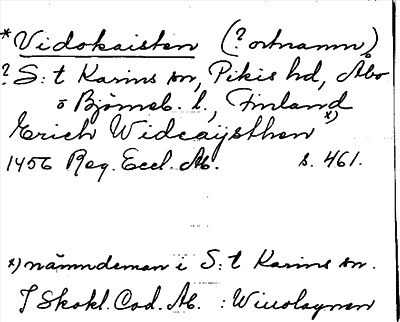 *Vidokaisten (? ortnamn)
? S:t Karins sn, Pikis hd, Åbo
o Björneb. l., Finland
Erich Widcaijsthen x)
1456 Reg. Eccl. Ab. s. 461.
x) nämndeman i S:t Karins sn.
I Skokl. Cod. Ab. :